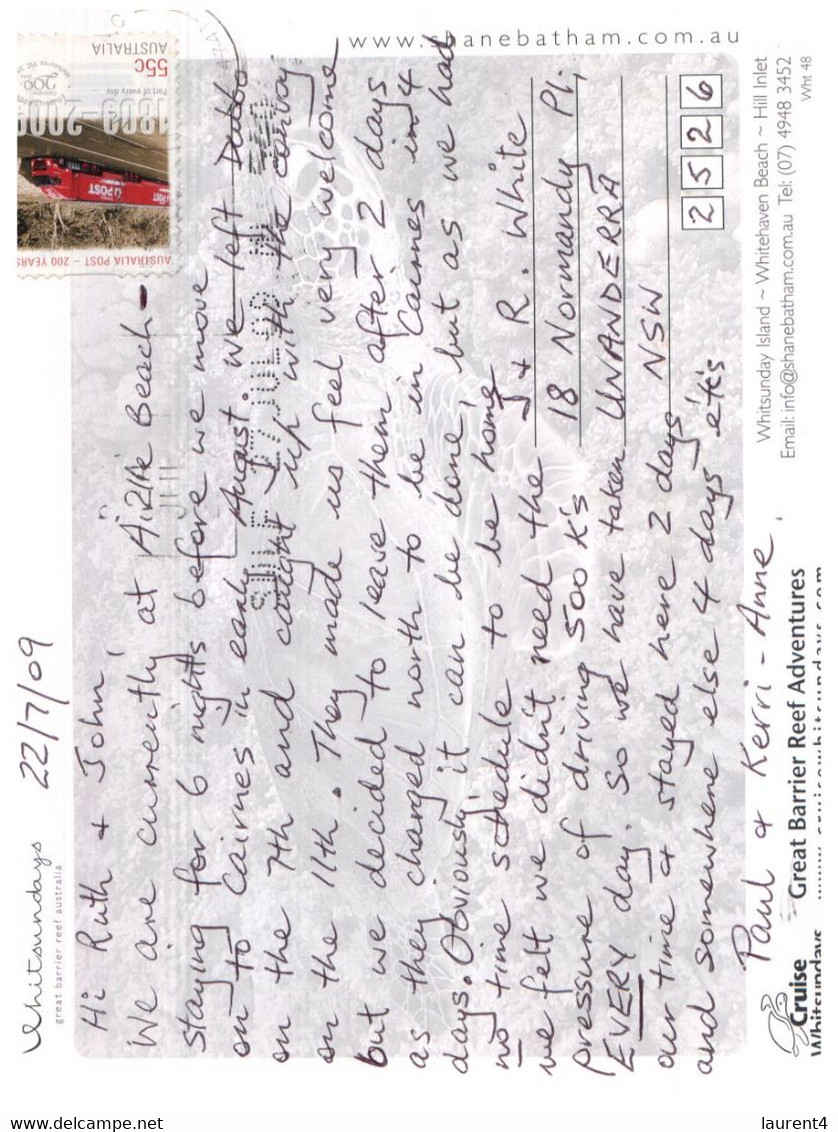 Whitsundays 22/7/09
great barrier reef australia
Hi Ruth & John,
We are currently at Airlie Beach -
staying for 6 nights before we move
on to Cairnes in early August. We left Dubbo
on the 7th and caught up with the convoy
on the 11th. They made us feel very welcome
but we decided to leave them after 2 days
as they charged north to be in Cairnes in 4
days. Obviously it can be done, but as we had
no time schedule to be home
we felt we didn't need the
pressure of driving 500 k's
EVERY day. So we have taken
our time & stayed here 2 days
and somewhere else 4 days etc's
Paul & Kerri-Anne.
J & R. White
18 Normandy Pl,
UNANDERRA
NSW
2526
AUSTRALIA
55c
Part of every day
200
1809-2009
POST
AUSTRALIA POST - 200 YEARS
4741
www.shanebatham.com.au
Whitsunday Island ~ Whitehaven Beach ~ Hill Inlet
Email: info@shanebatham.com.au Tel: (07) 4948 3452
Wht 48
Cruise
Whitsundays
Great Barrier Reef Adventures
www.cruisewhitsundays.com
laurent4